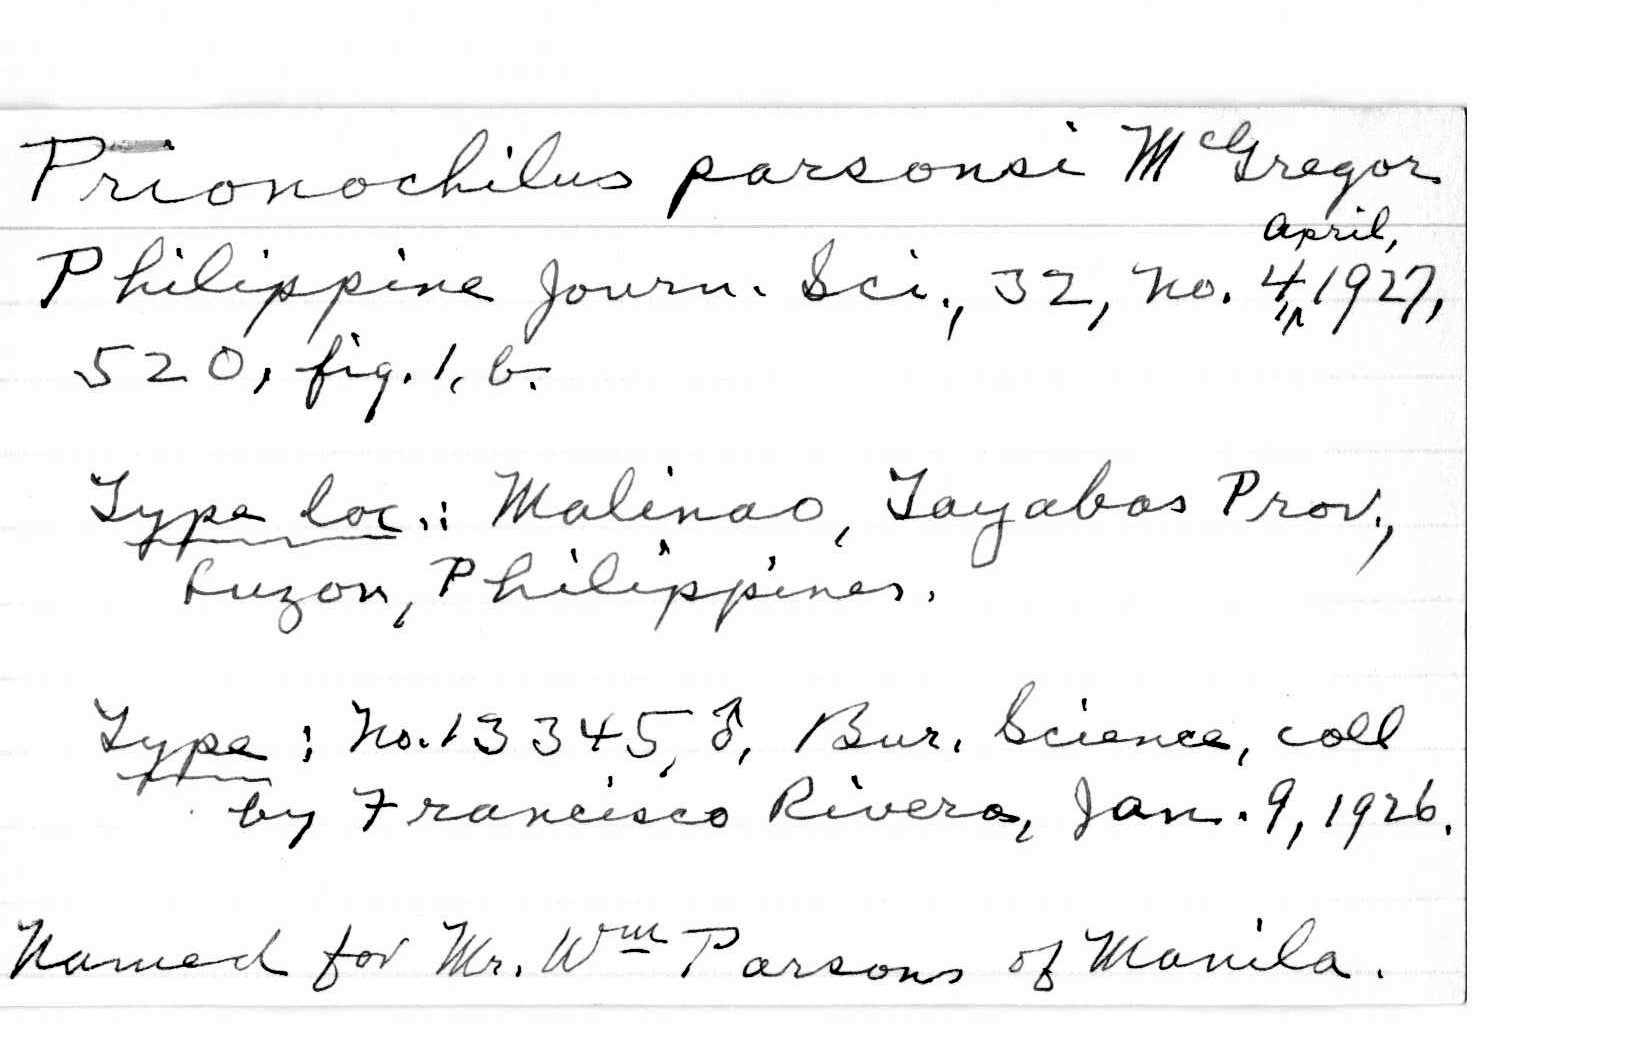 Prionochilus parsonsi McGregor
Philippine Journ. Sci., 32, no. 4, April, 1927,
520, fig. 1, b.
Type loc.: Malinao, Tayabas Prov.,
Luzon, Philippines.
Type: No. 13345, ♂, Bur. Science, coll
by Francisco Rivera, Jan. 9, 1926.
Named for Mr. Wm Parsons of Manila.